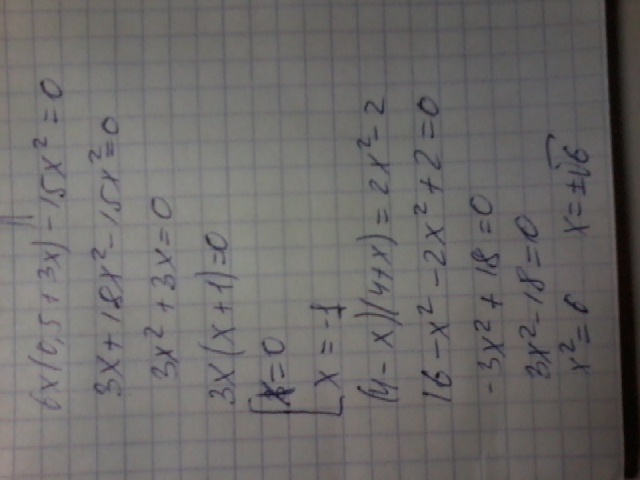 6x(0,5+3x)-15x²=0
3x+18x²-15x²=0
3x²+3x=0
3x(x+1)=0
[x=0
[x=-1
(4-x)(4+x)=2x²-2
16-x²-2x²+2=0
-3x²+18=0
3x²-18=0
x²=6 x=±√6